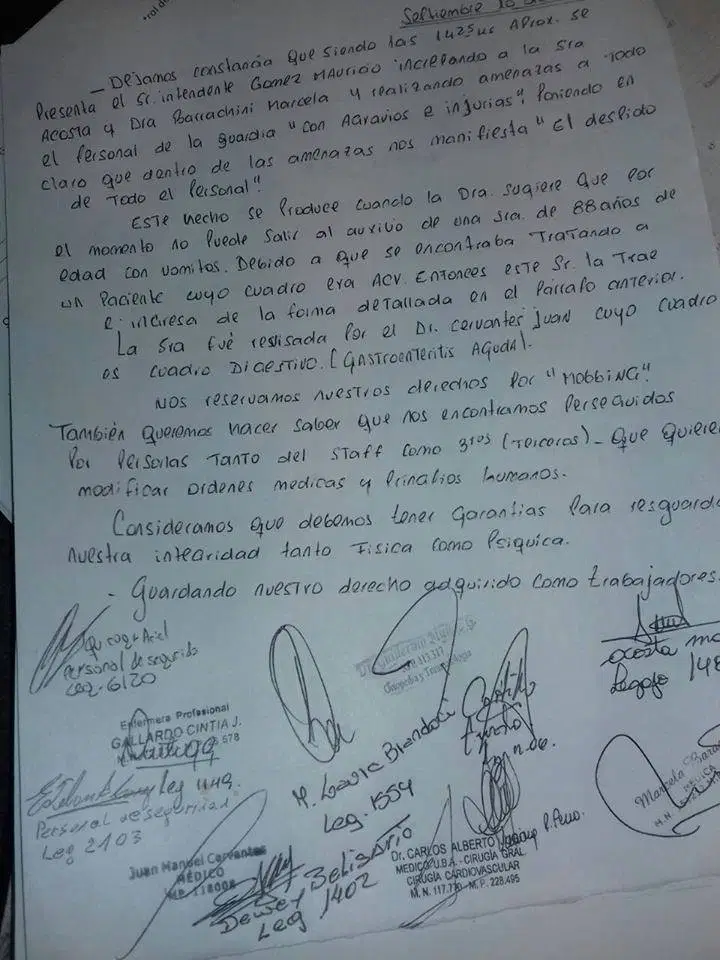 Septiembre 10
- Dejamos constancia que siendo las 1425 hs Aprox. se
Presenta el Sr. intendente Gomez Mauricio increpando a la sra
Acosta y Dra Barrachini Marcela y realizando amenazas a todo
el Personal de la guardia "con Agravios e injurias". Poniendo en
claro que dentro de las amenazas nos manifiesta "El despido
de Todo el Personal".
ESTE hecho se Produce cuando la Dra. sugiere que por
el momento no Puede salir al auxilio de una sra. de 88 años de
edad con vomitos. Debido a que se encontraba Tratando a
un Paciente cuyo cuadro era ACV. Entonces este Sr. la Trae
e ingresa de la forma detallada en el Párrafo anterior.
La Sra fué revisada Por el Dr. Cervantes Juan cuyo cuadro
es cuadro Digestivo. [Gastroenteritis Aguda].
Nos reservamos nuestros derechos Por "Mobbing".
También Queremos hacer saber que nos encontramos Perseguidos
Por Personas Tanto del Staff como 3ros (terceros)- Que quieren
modificar ordenes medicas y Principios humanos.
Consideramos que debemos tener garantias Para resguarda
nuestra integridad tanto Fisica como Psiquica.
- Guardando nuestro derecho adquirido como trabajadores.
Ariel
Personal de segurida
Leg. 6120
Enfermera Profesional
GALLARDO CINTIA J.
578
Leg 1149
Personal de seguridad
Leg 2103
Juan Manuel Cervantes
MÉDICO
MP 118008
M. Laura
Leg. 1554
Belisario
Leg 1402
113.317
Ortopedia y Traumatologia
Dr. CARLOS ALBERTO
MEDICO U.B.A. - CIRUGÍA GRAL.
CIRUGÍA CARDIOVASCULAR
M.P. 228.495
acosta ma
Legajo 148
Marcela Bara
MÉDICA